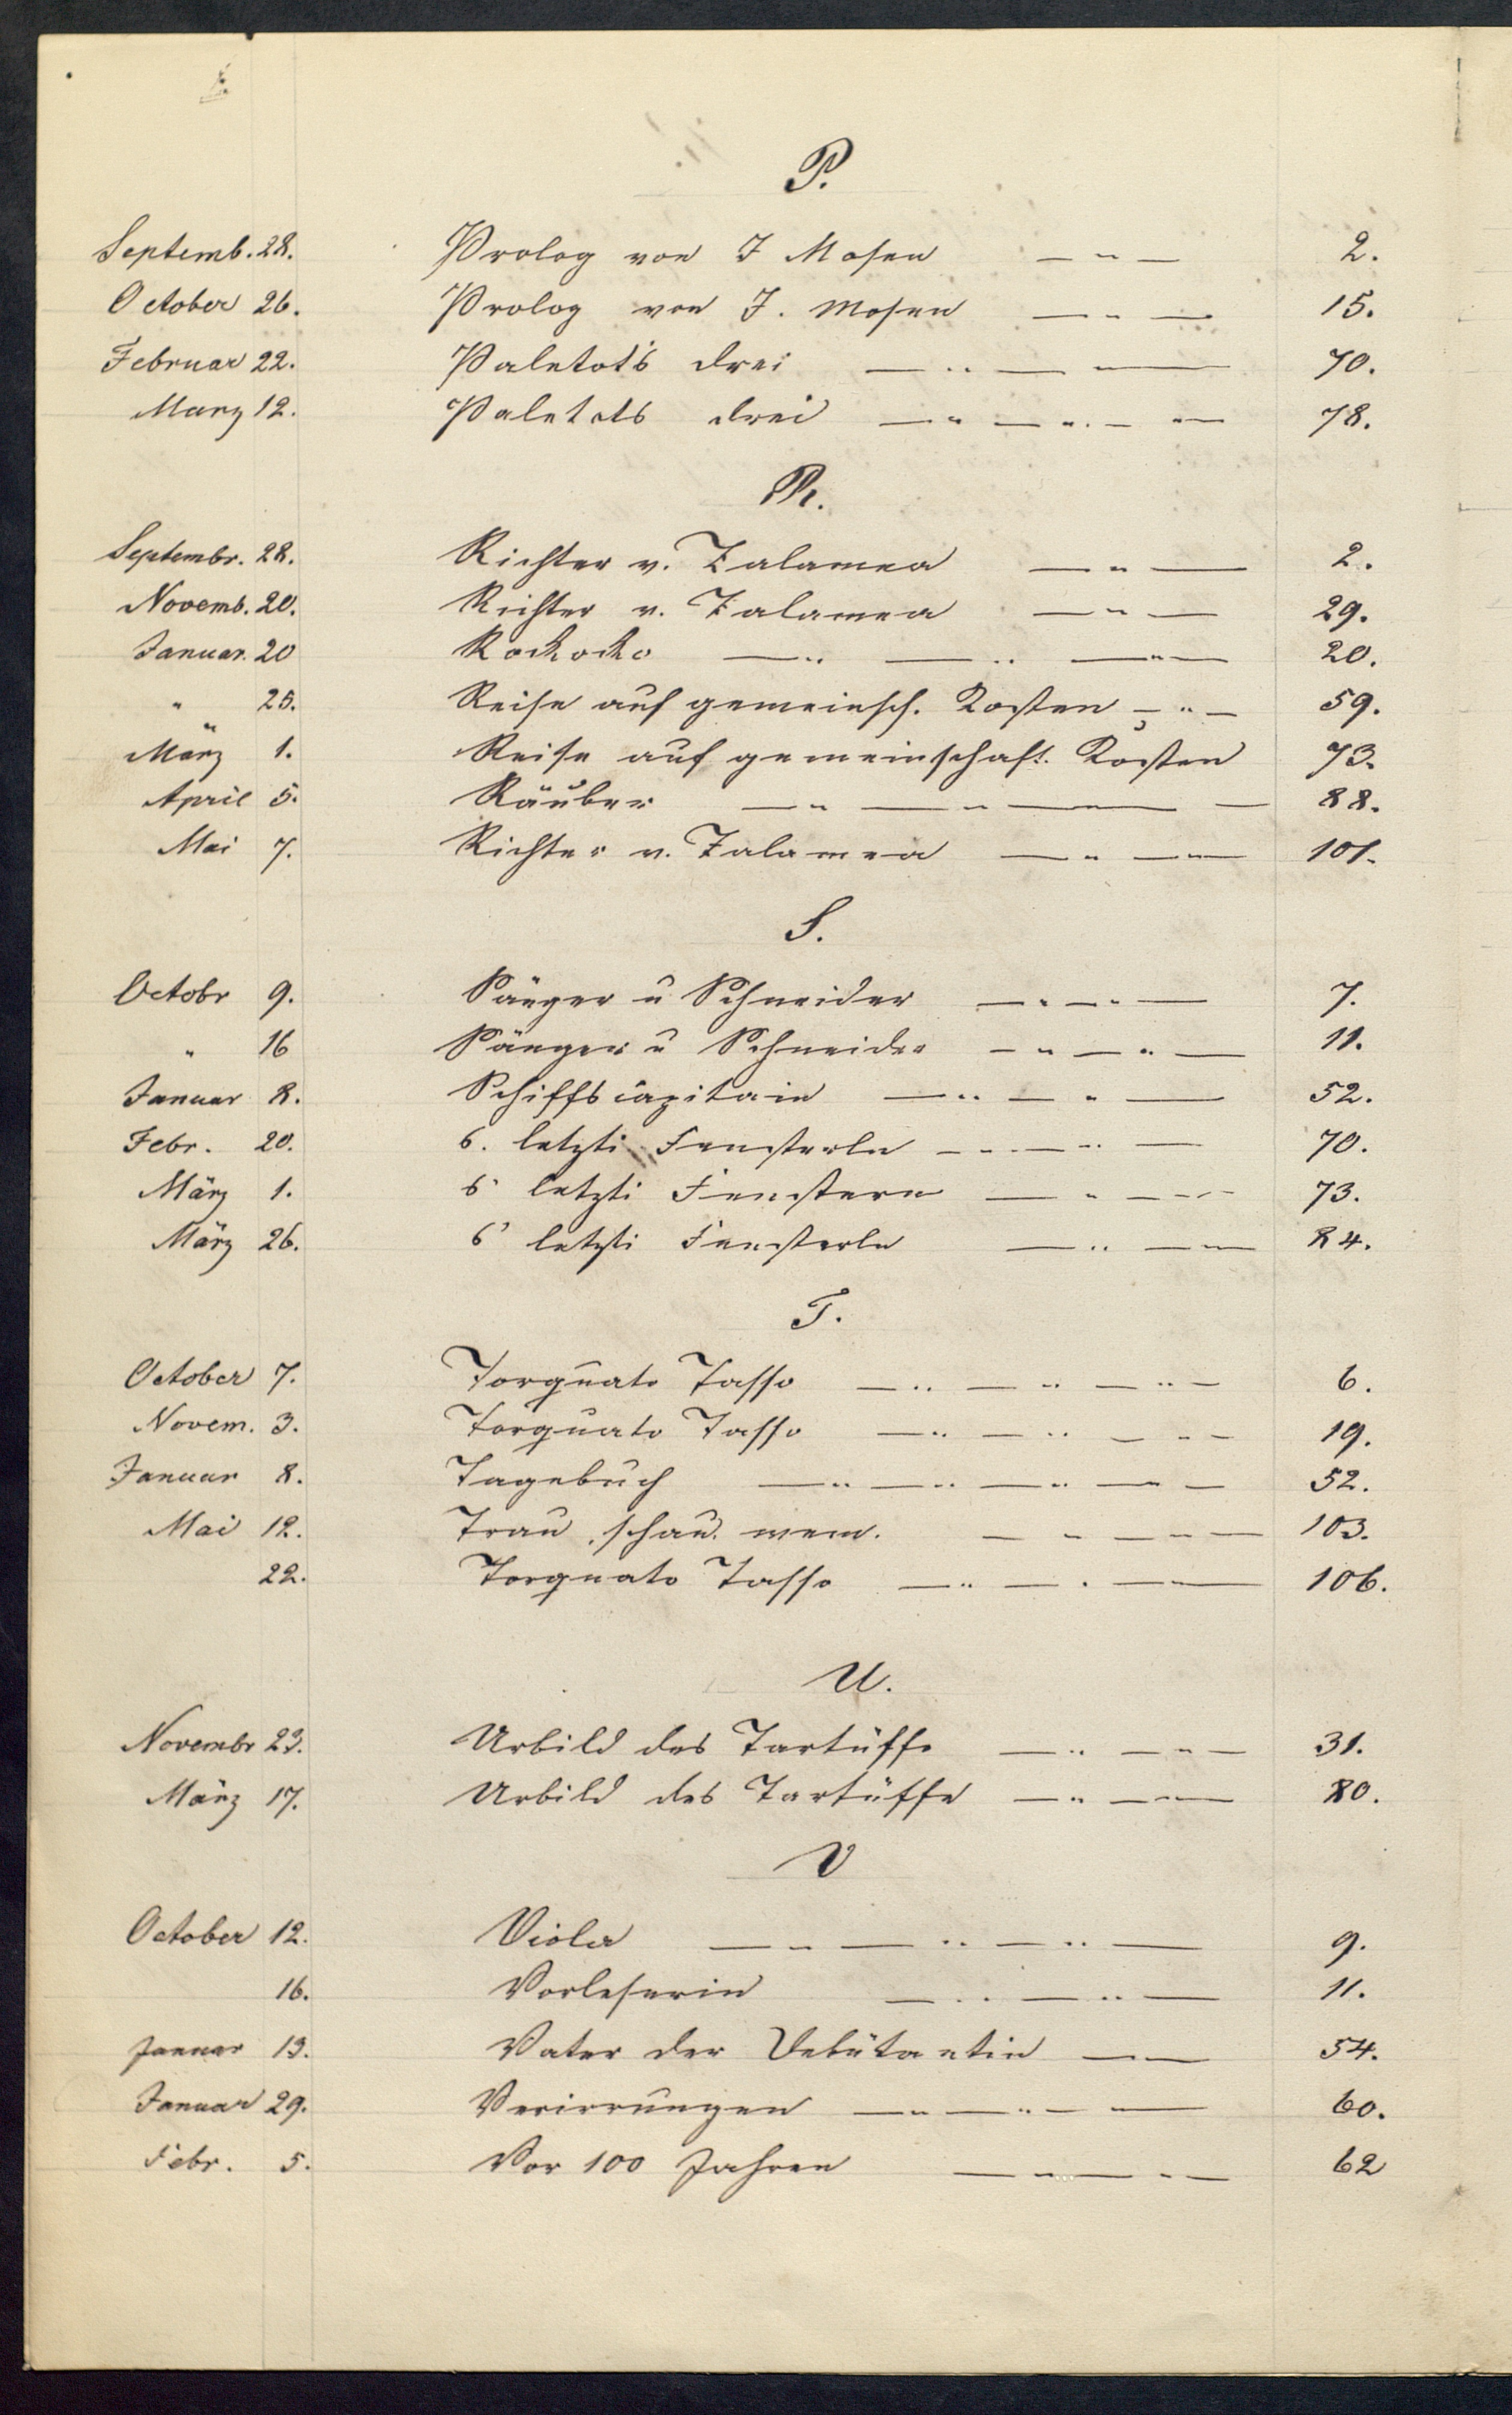 P.
Septemb. 28. Prolog von J Mosen — " — 2.
October 26. Prolog von J. Mosen — " — 15.
Februar 22. Paletots drei — " — — 70.
März 12. Paletots drei — " — " — " — 78.
R.
Septembr. 28. Richter v. Zalamea — " — 2.
Novemb. 20. Richter v. Zalamea — " — 29.
Januar. 20 Rockocko — " — " — " — 20.
" 25. Reise auf gemeinsch. Kosten — " — 59.
März 1. Reise auf gemeinschaft. Kosten 73.
April 5. Räuber — " — " — " — 88.
Mai 7. Richter v. Zalamea — " — " — 101.
S.
Octobr 9. Sänger u Schneider — " — " — 7.
" 16 Sänger u Schneider — " — " — 11.
Januar 8. Schiffscapitain — " — " — 52.
Febr. 20. s. letzti Fensterln — " — " — 70.
März 1. s' letzti Fenstern — " — " — 73.
März 26. s' letzti Fensterln — " — " — 84.
T.
October 7. Torquato Tasso — " — " — " — 6.
Novem. 3. Torquato Tasso — " — " — " — 19.
Januar 8. Tagebuch — " — " — " — " — 52.
Mai 12. Trau, schau. wem. — " — " — 103.
22. Torquato Tasso — " — " — " — 106.
U.
Novembr 23. Urbild des Tartüffe — " — " — 31.
März 17. Urbild des Tartüffe — " — " — 80.
V
October 12. Viola — " — " — " — 9.
16. Vorleserin — " — " — 11.
Januar 13. Vater der Debütantin — " — 54.
Januar 29. Verirrungen — " — " — " — 60.
Febr. 5. Vor 100 Jahren — " — " — 62